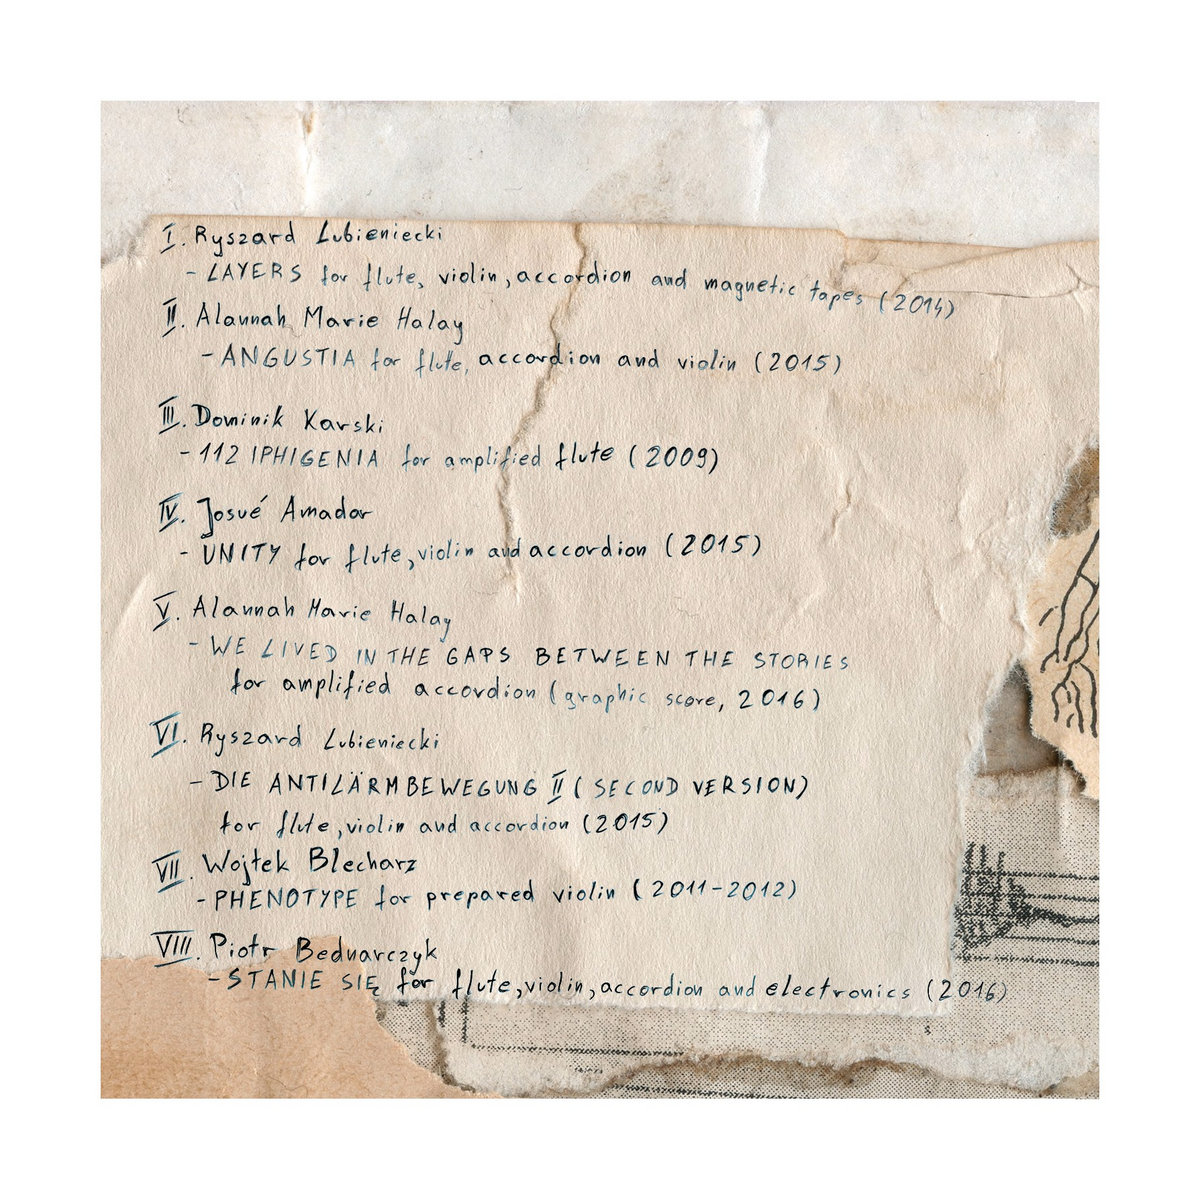 I. Ryszard Lubieniecki
- LAYERS for flute, violin, accordion and magnetic tapes (2014)
II. Alannah Marie Halay
- ANGUSTIA for flute, accordion and violin (2015)
III. Dominik Karski
- 112 IPHIGENIA for amplified flute (2009)
IV. Josué Amador
- UNITY for flute, violin and accordion (2015)
V. Alannah Marie Halay
- WE LIVED IN THE GAPS BETWEEN THE STORIES
for amplified accordion (graphic score, 2016)
VI. Ryszard Lubieniecki
- DIE ANTILÄRMBEWEGUNG II (SECOND VERSION)
for flute, violin and accordion (2015)
VII. Wojtek Blecharz
- PHENOTYPE for prepared violin (2011-2012)
VIII. Piotr Bednarczyk
- STANIE SIĘ for flute, violin, accordion and electronics (2016)